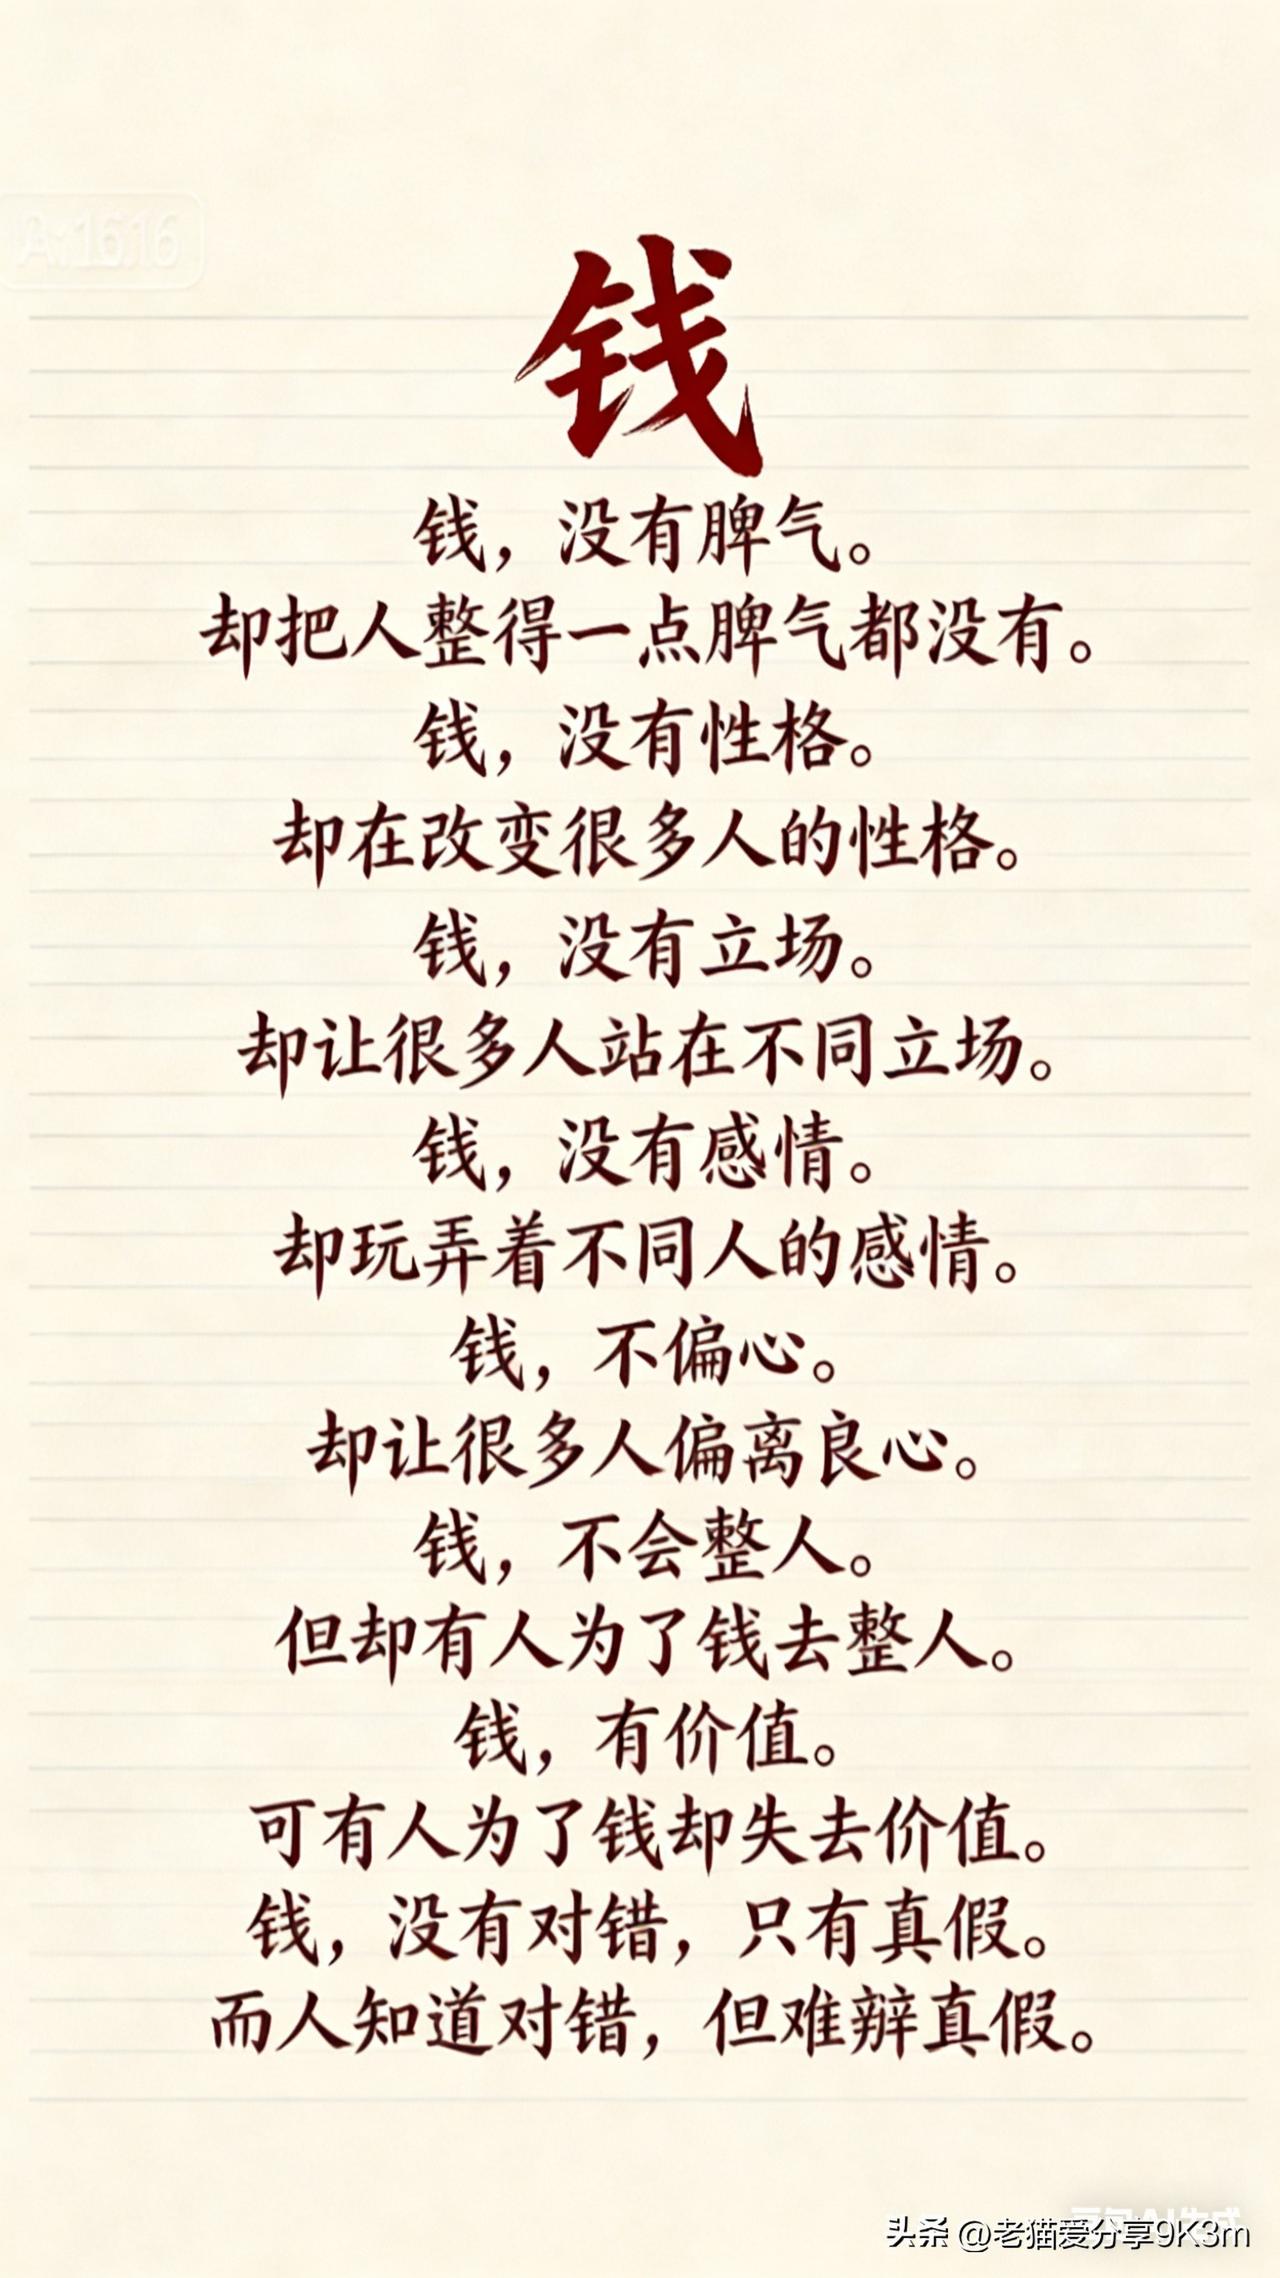 钱
钱，没有脾气。
却把人整得一点脾气都没有。
钱，没有性格。
却在改变很多人的性格。
钱，没有立场。
却让很多人站在不同立场。
钱，没有感情。
却玩弄着不同人的感情。
钱，不偏心。
却让很多人偏离良心。
钱，不会整人。
但却有人为了钱去整人。
钱，有价值。
可有人为了钱却失去价值。
钱，没有对错，只有真假。
而人知道对错，但难辨真假。
头条 @老猫爱分享9K3m